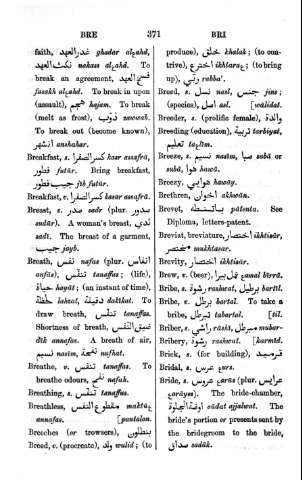 BRE 371 BRI
faith, غدر العهد ghadar alɛahd,
نكث العهد nakass alɛahd. To
break an agreement, فسخ العهد
fasakh alɛahd. To break in upon
(assault), هجم hajam. To break
(melt as frost), ذوّب zawwab.
To break out (become known),
انشهر anshahar.
Breakfast, s. كسر الصفرا kasr assafrā,
فطور futūr. Bring breakfast,
جيب فطور jīb futūr.
Breakfast, v. كسر الصفرا kasar assafrā.
Breast, s. صدر sadr (plur. صدور
sudūr). A woman's breast, ثدي
sadī. The breast of a garment,
جيب jayb.
Breath, نفس nafas (plur. انفاس
anfās), تنفّس tanaffus; (life),
حياة hayāt; (an instant of time),
لحظة lahzat, دقيقة dakīkat. To
draw breath, تنفّس tanaffas.
Shortness of breath, ضيق النفس
dīk annafas. A breath of air,
نسيم nasīm, نفحة nufhat.
Breathe, v. تنفّس tanaffas. To
breathe odours, نفح nafah.
Breathing, s. تنفّس tanaffus.
Breathless, مقطوع النفس maktūɛ
annafas. [pantalon.
Breeches (or trowsers), بنطلون
Breed, v. (procreate), ولد wulid; (to
produce), خلق khalak; (to con-
trive), اخترع ikhtaraɛ; (to bring
up), ربّى rabba'.
Breed, s. نسل nasl, جنس jins;
(species), اصل asl. [wālidat.
Breeder, s. (prolific female), والدة
Breeding (education), تربية tarbiyat,
تعليم taɛlīm.
Breeze, s. نسيم nasīm, صبا saba or
subā, هوا hawā.
Breezy, هوايي hawāyy.
Brethren, اخوان akhwān.
Brevet, s. پاتنتة pātenta. See
Diploma, letters-patent.
Breviat, breviature, اختصار ikhtisār,
مختصر mukhtasar.
Brevity, اختصار ikhtisār.
Brew, v. (beer), عمل بيرا ɛamal bīrā.
Bribe, s. رشوة rashwat, برطيل bartīl.
Bribe, v. برطل bartal. To take a
bribe, تبرطل tabartal. [til.
Briber, s. راشي rāshī, مبرطل mubar-
Bribery, رشوة rashwat. [karmīd.
Brick, s. (for building), قرميد
Bridal, s. عرس ɛars.
Bride, s. عروس ɛarūs (plur. عرايس
ɛarāyes). The bride-chamber,
اوضة الجلوة ūdat aljalwat. The
bride's portion or presents sent by
the bridegroom to the bride,
صداق sadāk.